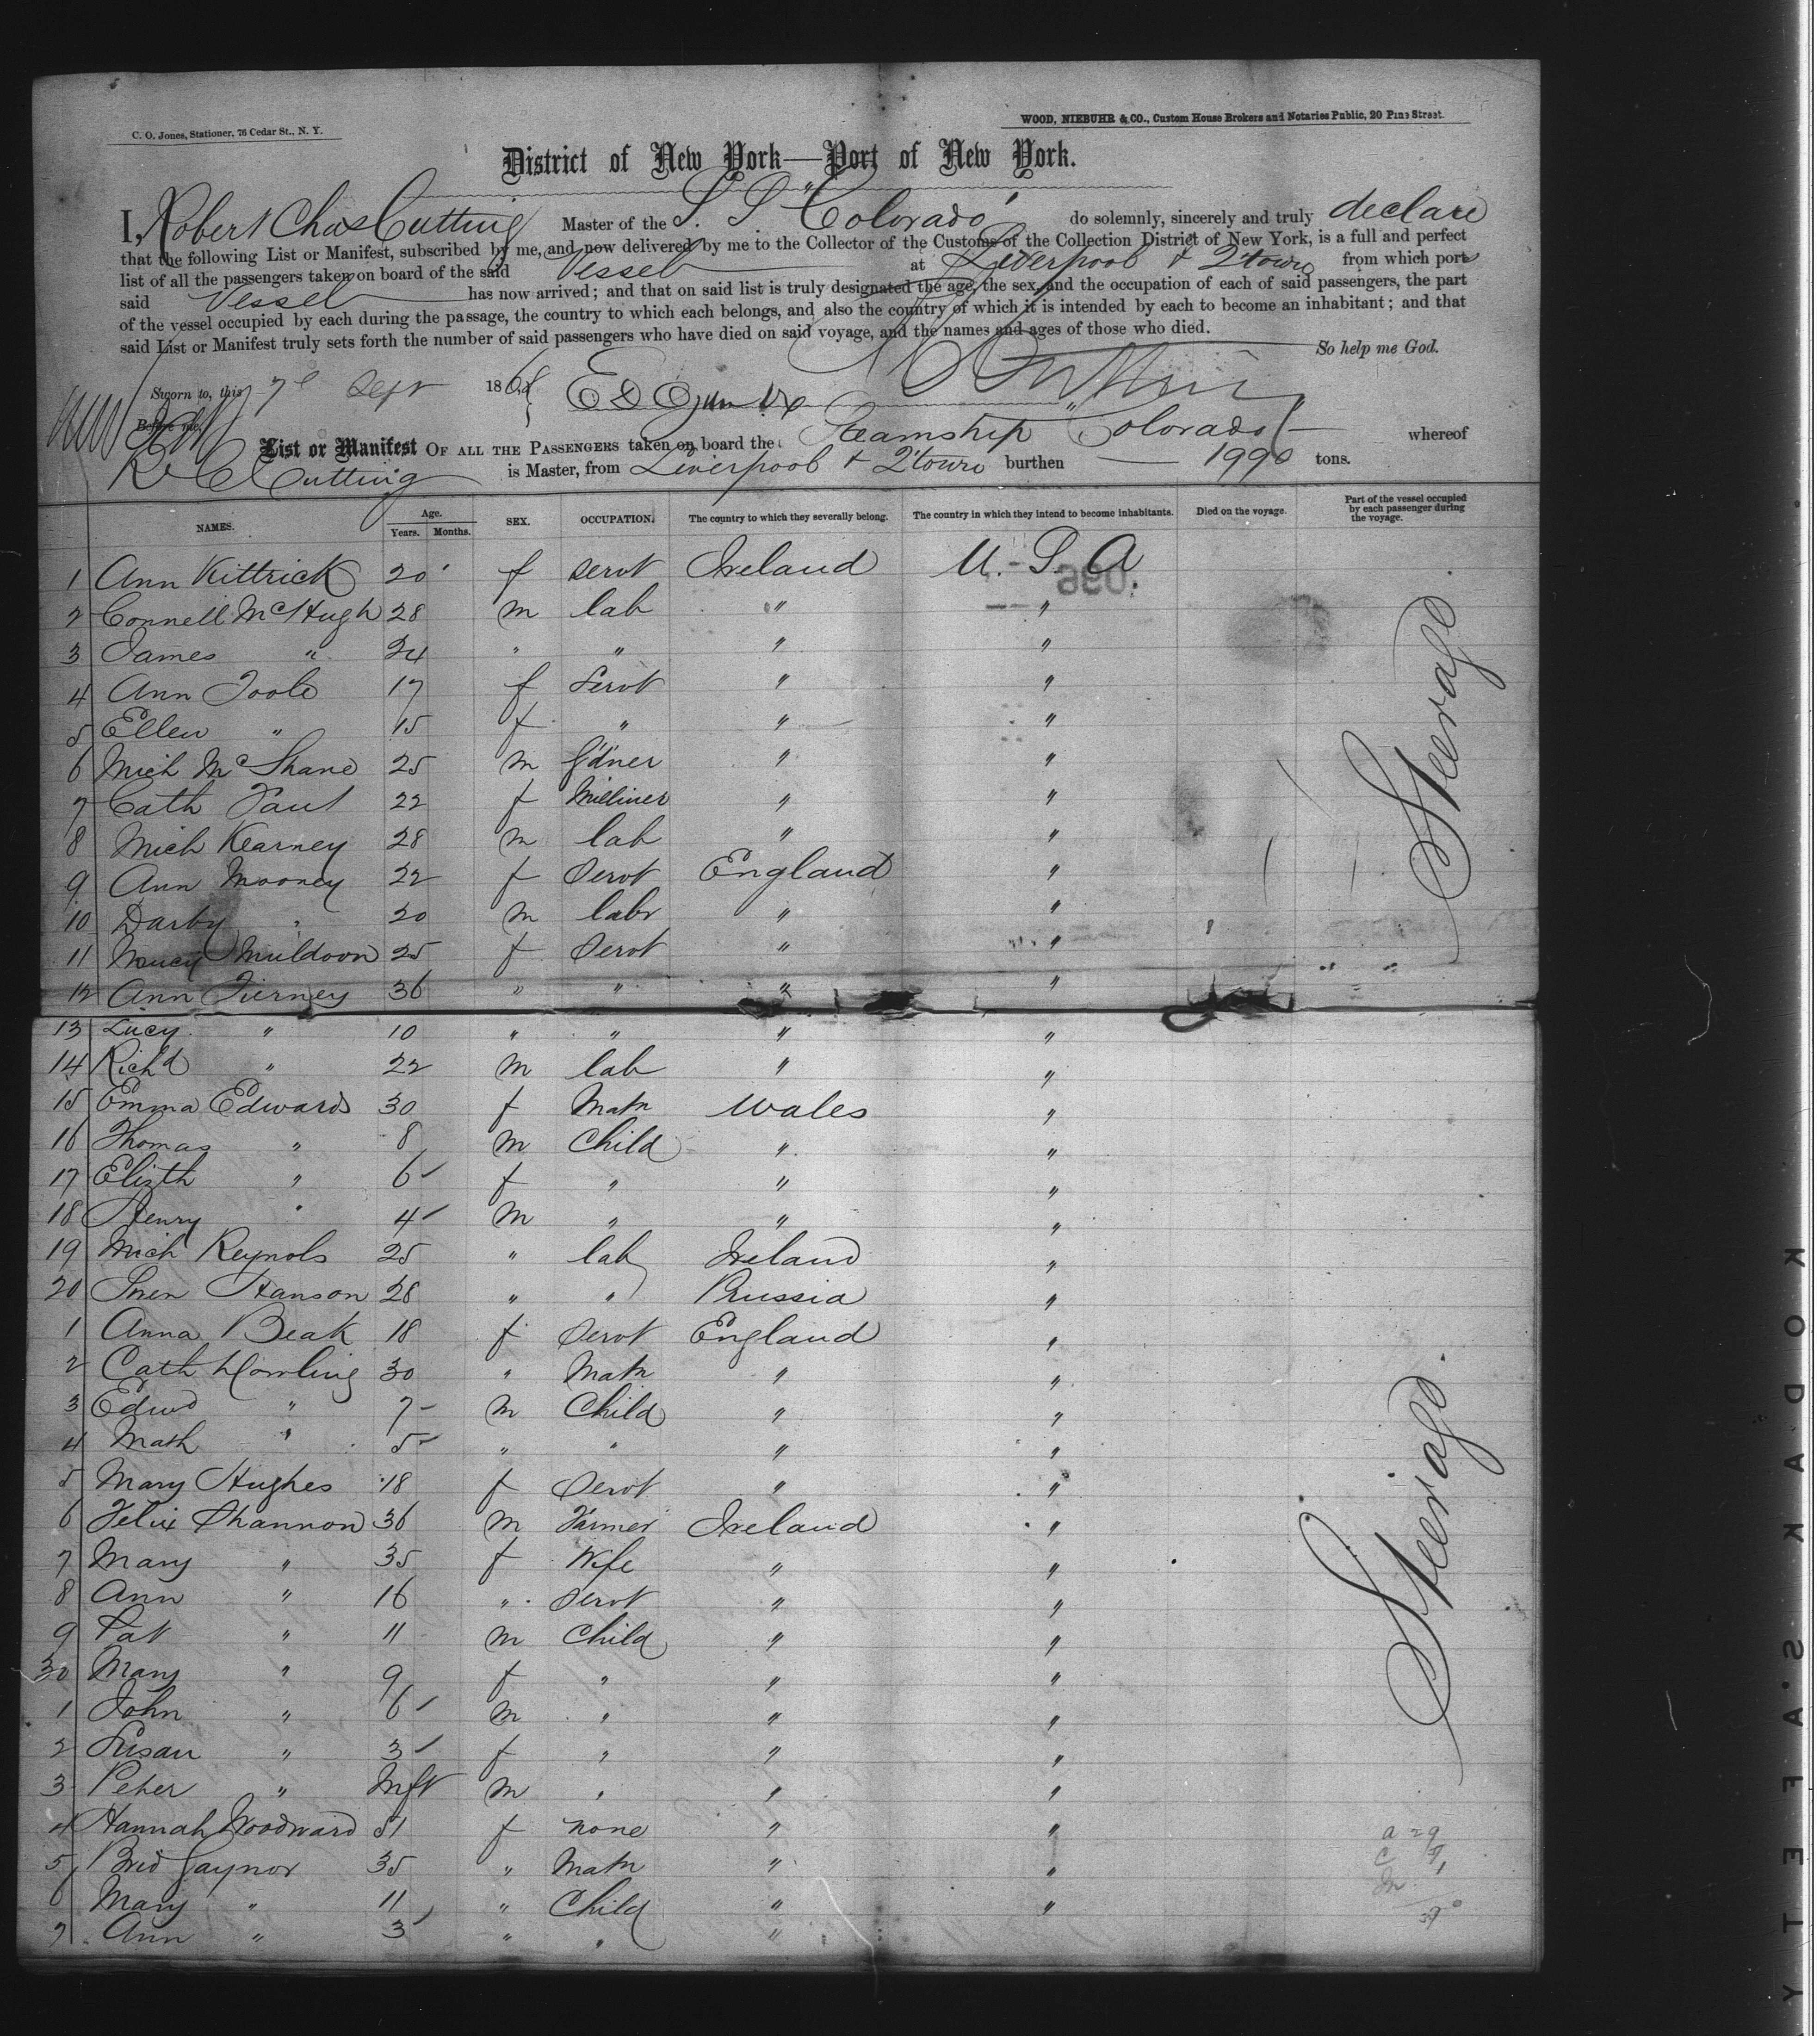 C. O. Jones, Stationer, 76 Cedar St., N. Y.
WOOD, NIEBUHR & CO., Custom House Brokers and Notaries Public, 20 Pine Street.
District of New York—Port of New York.
I, Robert Chas Cutting Master of the S. S. "Colorado" do solemnly, sincerely and truly declare
that the following List or Manifest, subscribed by me, and now delivered by me to the Collector of the Customs of the Collection District of New York, is a full and perfect
list of all the passengers taken on board of the said Vessel at Liverpool & Qtown from which ports
said Vessel has now arrived; and that on said list is truly designated the age, the sex, and the occupation of each of said passengers, the part
of the vessel occupied by each during the passage, the country to which each belongs, and also the country of which it is intended by each to become an inhabitant; and that
said List or Manifest truly sets forth the number of said passengers who have died on said voyage, and the names and ages of those who died.
So help me God.
Sworn to, this 7 Sept 1868
Before me,
List or Manifest OF ALL THE PASSENGERS taken on board the Steamship "Colorado" whereof
R C Cutting is Master, from Liverpool & Qtown burthen 1990 tons.
NAMES. Age. Years. Months. SEX. OCCUPATION. The country to which they severally belong. The country in which they intend to become inhabitants. Died on the voyage. Part of the vessel occupied by each passenger during the voyage.
1 Ann Kittrick 20 f servt Ireland U. S. A
2 Connell McHugh 28 m lab " "
3 James " 24 " " " "
4 Ann Toole 17 f Servt " "
5 Ellen " 15 f " " "
6 Mich McShane 25 m G'dner " "
7 Cath 22 f Milliner " "
8 Mich Kearney 28 m lab " "
9 Ann Mooney 22 f Servt England "
10 Darby " 20 m labr " "
11 Muldoon 25 f Servt " "
12 Ann Tierney 36 " " " "
13 Lucy " 10 " " " "
14 Richd " 22 m lab " "
15 Emma Edwards 30 f Matn Wales "
16 Thomas " 8 m Child " "
17 Elizth " 6 f " " "
18 Henry " 4 m " " "
19 Mich Reynols 25 " lab Ireland "
20 Sven Hanson 28 " " Prussia "
1 Anna Beak 18 f Servt England "
2 Cath Howling 30 " Matn " "
3 Edwd " 7 m Child " "
4 Math " 5 " " " "
5 Mary Hughes 18 f Servt " "
6 Felix Shannon 36 m Farmer Ireland "
7 Mary " 35 f Wife " "
8 Ann " 16 " Servt " "
9 Pat " 11 m Child " "
30 Mary " 9 f " " "
1 John " 6 m " " "
2 Susan " 3 f " " "
3 Peter " Inft m " " "
4 Hannah Woodward 51 f none " "
5 Brid Gaynor 35 " Matn " "
6 Mary " 11 " Child " "
7 Ann " 3 " " "
Steerage
Steerage
KODAK SAFETY